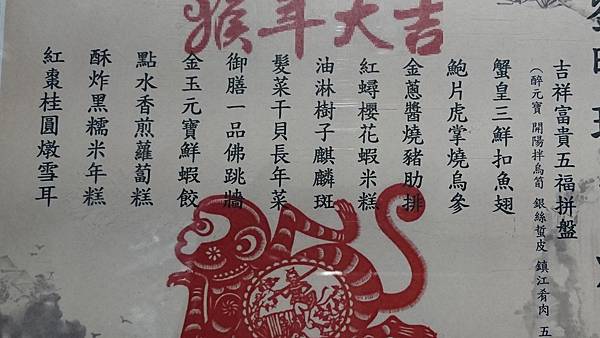 猴年大吉
吉祥富貴五福拼盤
(醉元寶 開陽拌烏筍 銀絲蜇皮 鎮江肴肉 五
蟹皇三鮮扣魚翅
鮑片虎掌燒烏參
金蔥醬燒豬肋排
紅蟳櫻花蝦米糕
油淋樹子麒麟斑
髮菜干貝長年菜
御膳一品佛跳牆
金玉元寶鮮蝦餃
點水香煎蘿蔔糕
酥炸黑糯米年糕
紅棗桂圓燉雪耳